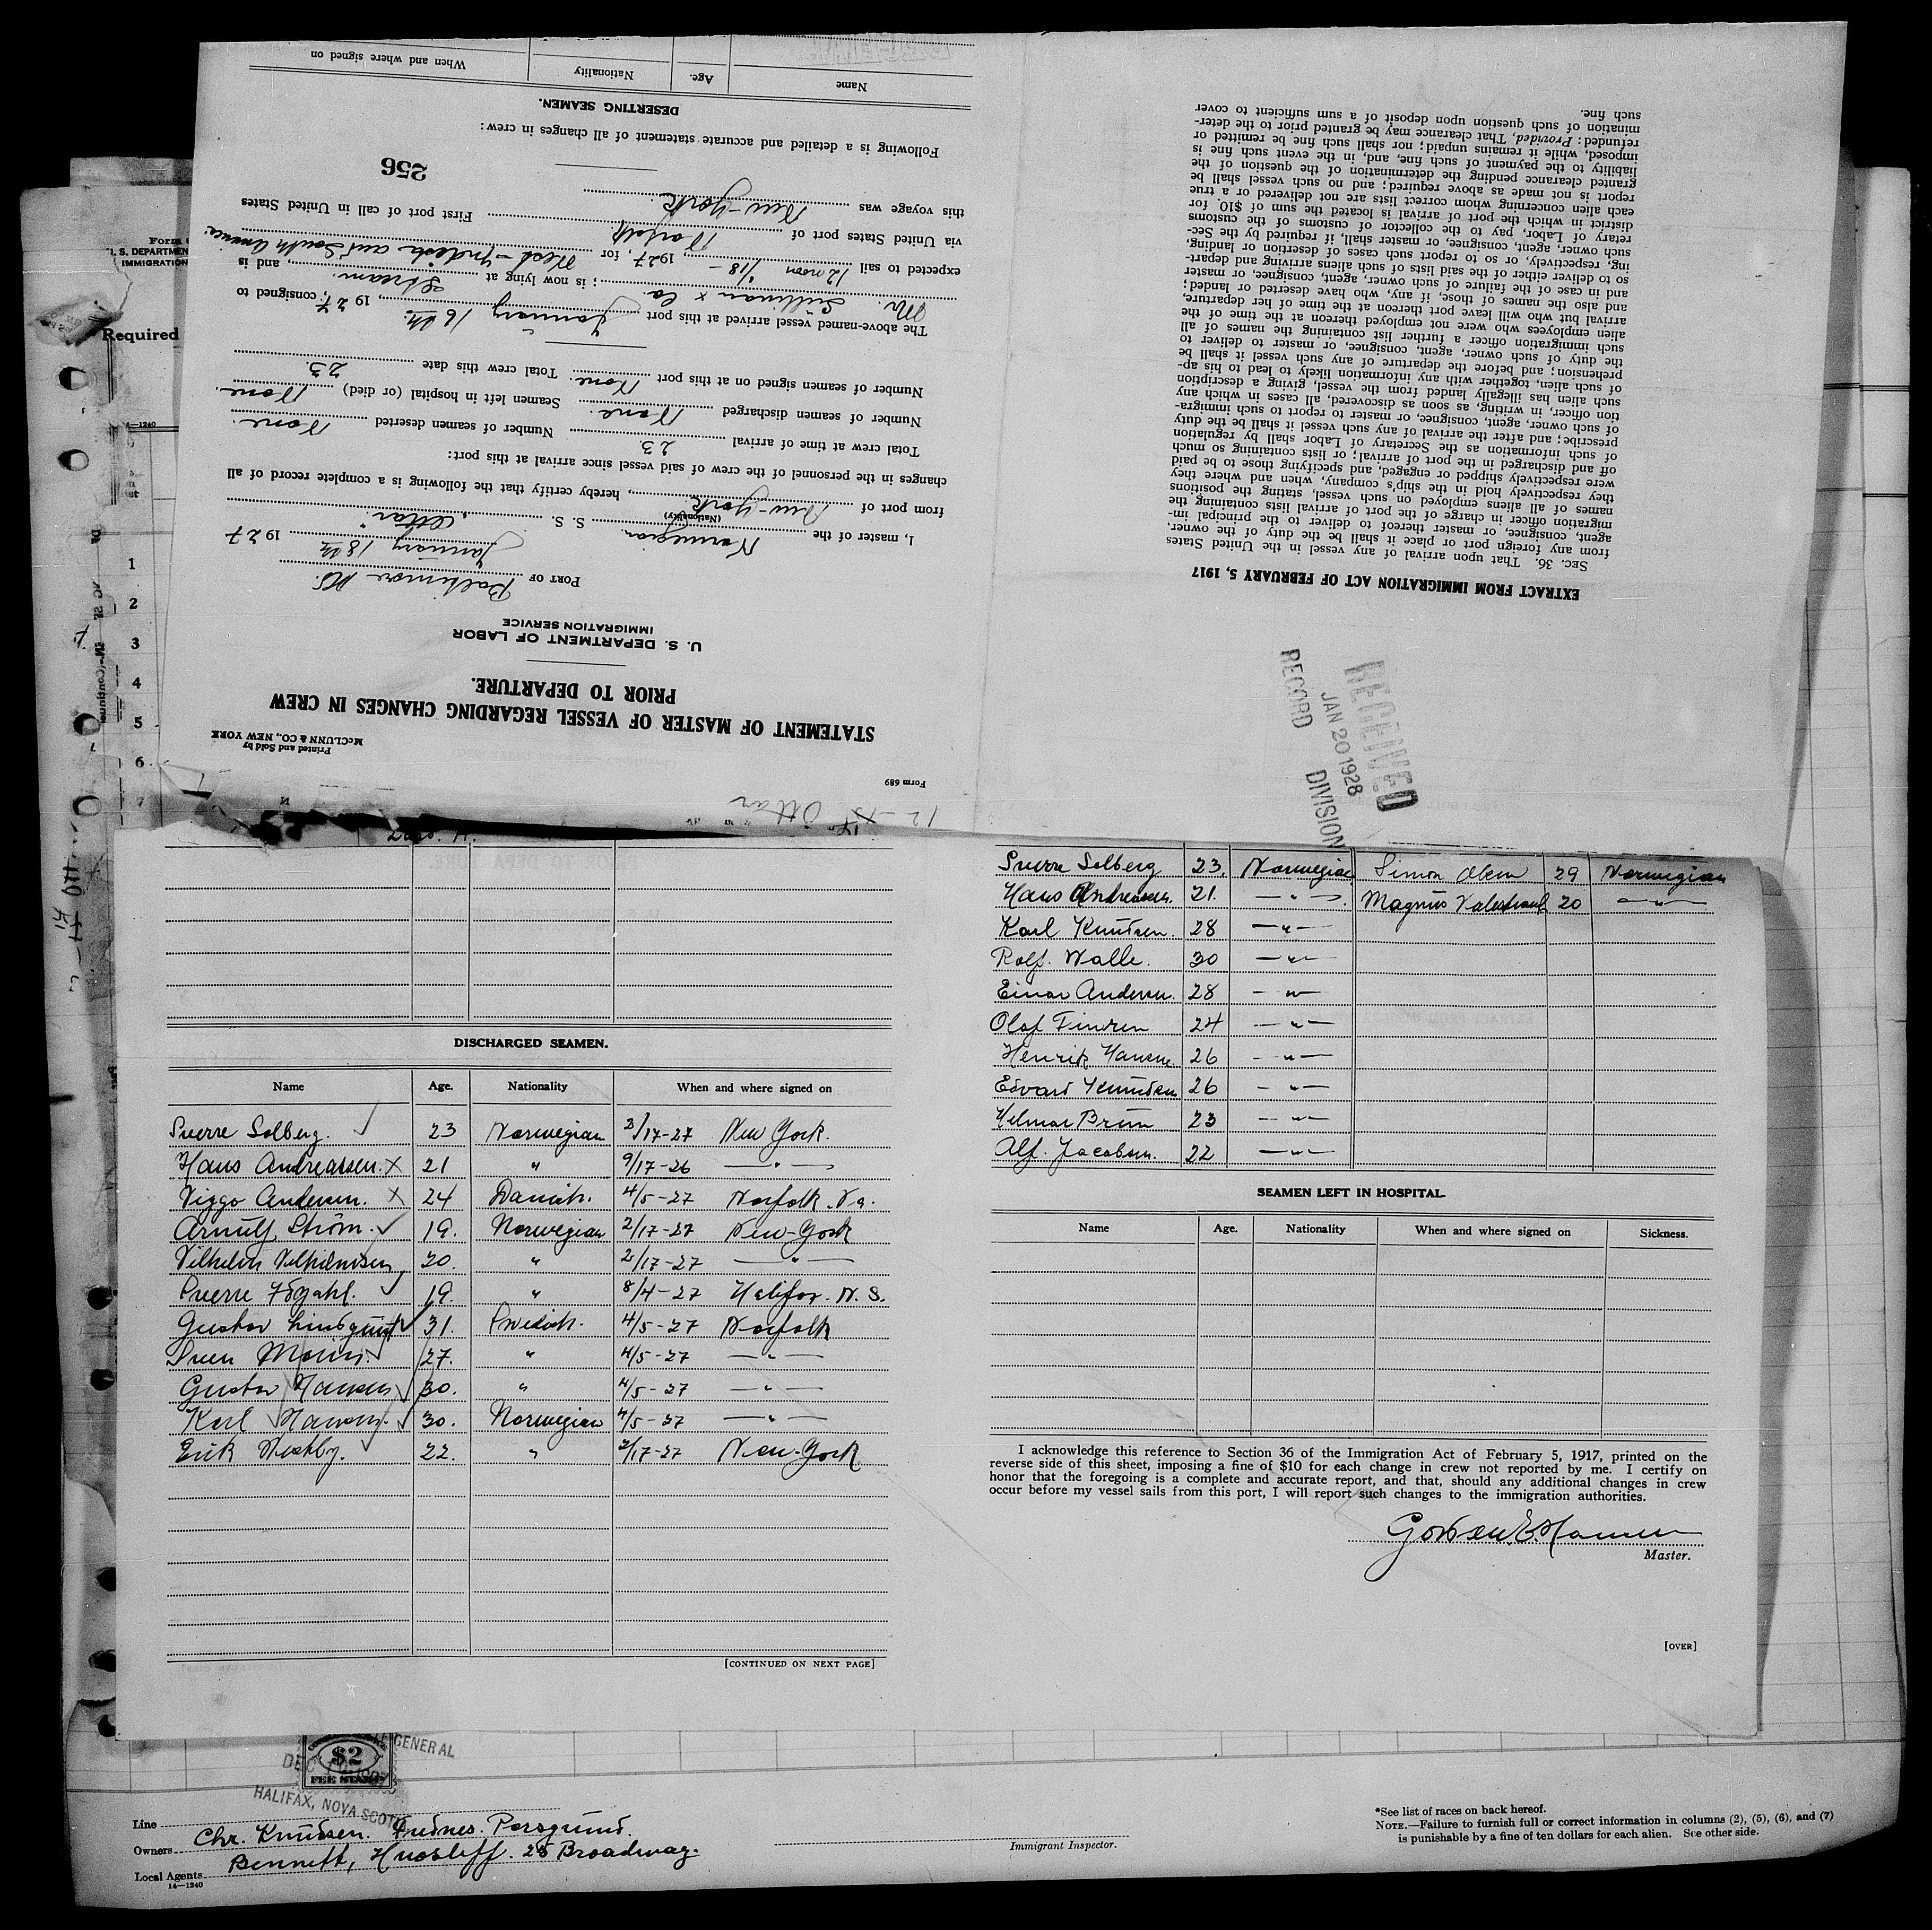 Form 689
Printed and Sold by
McCLUNN & CO., NEW YORK
STATEMENT OF MASTER OF VESSEL REGARDING CHANGES IN CREW
PRIOR TO DEPARTURE.
U. S. DEPARTMENT OF LABOR
IMMIGRATION SERVICE
PORT OF Baltimore Md.
January 18th 1927
I, master of the Norwegian S. S. "Ottar",
(Nationality)
from port of New-York, hereby certify that the following is a complete record of all
changes in the personnel of the crew of said vessel since arrival at this port:
Total crew at time of arrival 23 Number of seamen deserted None.
Number of seamen discharged None. Seamen left in hospital (or died) None.
Number of seamen signed on at this port None. Total crew this date 23.
The above-named vessel arrived at this port January 16th, 1927, consigned to
Mr. & Co.; is now lying at Stream., and is
expected to sail 12 noon 1/18 -, 1927, for West-Indies and South America
via United States port of Norfolk First port of call in United States
this voyage was New-York.
256
Following is a detailed and accurate statement of all changes in crew:
DESERTING SEAMEN.
Name Age. Nationality When and where signed on
EXTRACT FROM IMMIGRATION ACT OF FEBRUARY 5, 1917
SEC. 36. That upon arrival of any vessel in the United States
from any foreign port or place it shall be the duty of the owner,
agent, consignee, or master thereof to deliver to the principal im-
migration officer in charge of the port of arrival lists containing the
names of all aliens employed on such vessel, stating the positions
they respectively hold in the ship's company, when and where they
were respectively shipped or engaged, and specifying those to be paid
off and discharged in the port of arrival; or lists containing so much
of such information as the Secretary of Labor shall by regulation
prescribe; and after the arrival of any such vessel it shall be the duty
of such owner, agent, consignee, or master to report to such immigra-
tion officer, in writing, as soon as discovered, all cases in which any
such alien has illegally landed from the vessel, giving a description
of such alien, together with any information likely to lead to his ap-
prehension; and before the departure of any such vessel it shall be
the duty of such owner, agent, consignee, or master to deliver to
such immigration officer a further list containing the names of all
alien employees who were not employed thereon at the time of the
arrival but who will leave port thereon at the time of her departure,
and also the names of those, if any, who have deserted or landed;
and in case of the failure of such owner, agent, consignee, or master
so to deliver either of the said lists of such aliens arriving and depart-
ing, respectively, or so to report such cases of desertion or landing,
such owner, agent, consignee, or master, shall, if required by the Sec-
retary of Labor, pay to the collector of customs of the customs
district in which the port of arrival is located the sum of $10. for
each alien concerning whom correct lists are not delivered or a true
report is not made as above required; and no such vessel shall be
granted clearance pending the determination of the question of the
liability to the payment of such fine, and, in the event such fine is
imposed, while it remains unpaid; nor shall such fine be remitted or
refunded: Provided, That clearance may be granted prior to the deter-
mination of such question upon deposit of a sum sufficient to cover
such fine.
RECEIVED
JAN 20 1928
RECORD DIVISION
12-15 Ottar
Form
U. S. DEPARTMENT
IMMIGRATION
Required
14-1240
1
2
3
4
5
6
7
DISCHARGED SEAMEN.
Name Age. Nationality When and where signed on
Sverre Solberg. 23 Norwegian 2/17-27 New York.
Hans Andreassen. X 21 " 9/17-26 — " —
Viggo Andersen. X 24 Danish. 4/5-27 Norfolk. Va.
Arnulf Strøm. 19. Norwegian 2/17-27 New-York
Vilhelm Vilhelmsen 20. " 2/17-27 — " —
Sverre 19. " 8/4-27 Halifax. N. S.
Gustav Lindquist 31. Swedish. 4/5-27 Norfolk
Sven 27. " 4/5-27 — " —
Gustav Hansen 30. " 4/5-27 — " —
Karl Hansen. 30. Norwegian 4/5-27 — " —
Erik 22. " 2/17-27 New-York
[CONTINUED ON NEXT PAGE]
Sverre Solberg 23. Norwegian Simon Olsen 29 Norwegian
Hans Andreassen. 21. — " — Magnus 20 — " —
Karl Knudsen. 28 — " —
Rolf. Walle. 30 — " —
Einar Andersen. 28 — " —
Olaf 24 — " —
Henrik Hansen. 26 — " —
Edvard Knudsen 26 — " —
Hilmar Brun 23 — " —
Alf. Jacobsen. 22 — " —
SEAMEN LEFT IN HOSPITAL.
Name Age. Nationality When and where signed on Sickness.
I acknowledge this reference to Section 36 of the Immigration Act of February 5, 1917, printed on the
reverse side of this sheet, imposing a fine of $10 for each change in crew not reported by me. I certify on
honor that the foregoing is a complete and accurate report, and that, should any additional changes in crew
occur before my vessel sails from this port, I will report such changes to the immigration authorities.
Hansen
Master.
[OVER]
$2
FEE STAMP
GENERAL
DEC
HALIFAX, NOVA SCOTIA
Line
Owners Chr. Knudsen. Porsgrund.
Local Agents Bennett, 25 Broadway.
14—1240
Immigrant Inspector.
*See list of races on back hereof.
NOTE.—Failure to furnish full or correct information in columns (2), (5), (6), and (7)
is punishable by a fine of ten dollars for each alien. See other side.